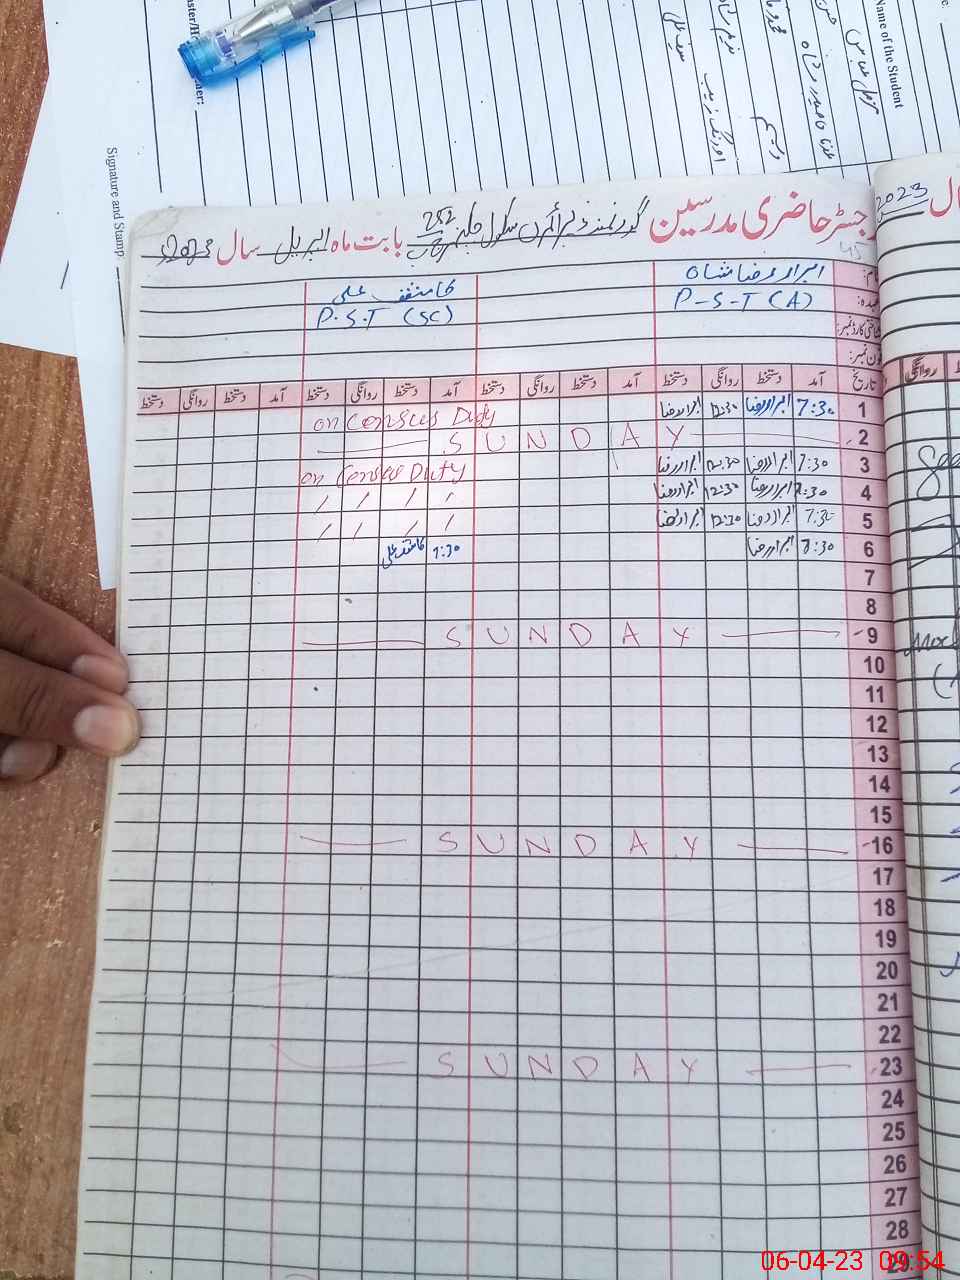 Name of the Student
Signature and Stamp
2023
رجسٹر حاضری مدرسین گورنمنٹ پرائمری سکول چک 252 بابت ماہ اپریل سال 2023
ابرار رضا شاہ
کاشف علی
P-S-T (A)
P.S.T (SC)
تاریخ آمد دستخط روانگی دستخط آمد دستخط روانگی دستخط آمد دستخط روانگی دستخط آمد دستخط روانگی دستخط
1 7:30 ابرار رضا 12:30 ابرار رضا on Census Duty
2 SUNDAY
3 7:30 ابرار رضا 12:30 ابرار رضا on Census Duty
4 7:30 ابرار رضا 12:30 ابرار رضا / / / /
5 7:30 ابرار رضا 12:30 ابرار رضا / / / /
6 7:30 ابرار رضا 7:30 کاشف علی
7
8
9 SUNDAY
10
11
12
13
14
15
16 SUNDAY
17
18
19
20
21
22
23 SUNDAY
24
25
26
27
28
29
06-04-23 09:54